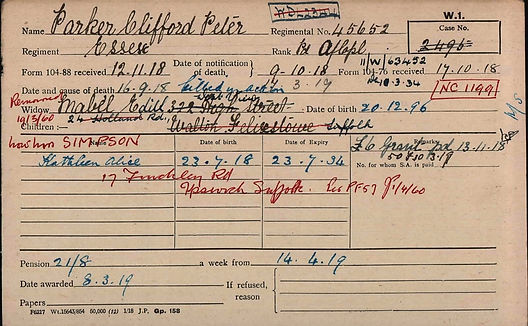 W.D. 23
W.1.
Name Parker Clifford Peter Regimental No. 45652 Case No.
Regiment Essex Rank 2496
Form 104-88 received 12.11.18 Date of notification of death, 9-10-18 11/W/63452 Form 104-76 received 17.10.18
Date and cause of death 16.9.18 Killed in action 14 3.19 10.3.34 NC 1199
Remarried 19/3/60 Widow Mabell Edith 322 High Street Date of birth 20.12.96
Children:— 24 Holland Rd, Walton Felixstowe Suffolk
now Mrs SIMPSON
Name Date of birth Date of Expiry £6 Grant pd 13-11-18
No. for whom S.A. is paid
Kathleen Alice 23.7.18 23.7.34
17 Finchley Rd
Ipswich Suffolk. See PF57 1/4/60
Pension 21/8 a week from 14.4.19
Date awarded 8.3.19 If refused, reason
Papers
F6227 Wt.15643/854 60,000 (12) 1/18 J.P. Gp. 158